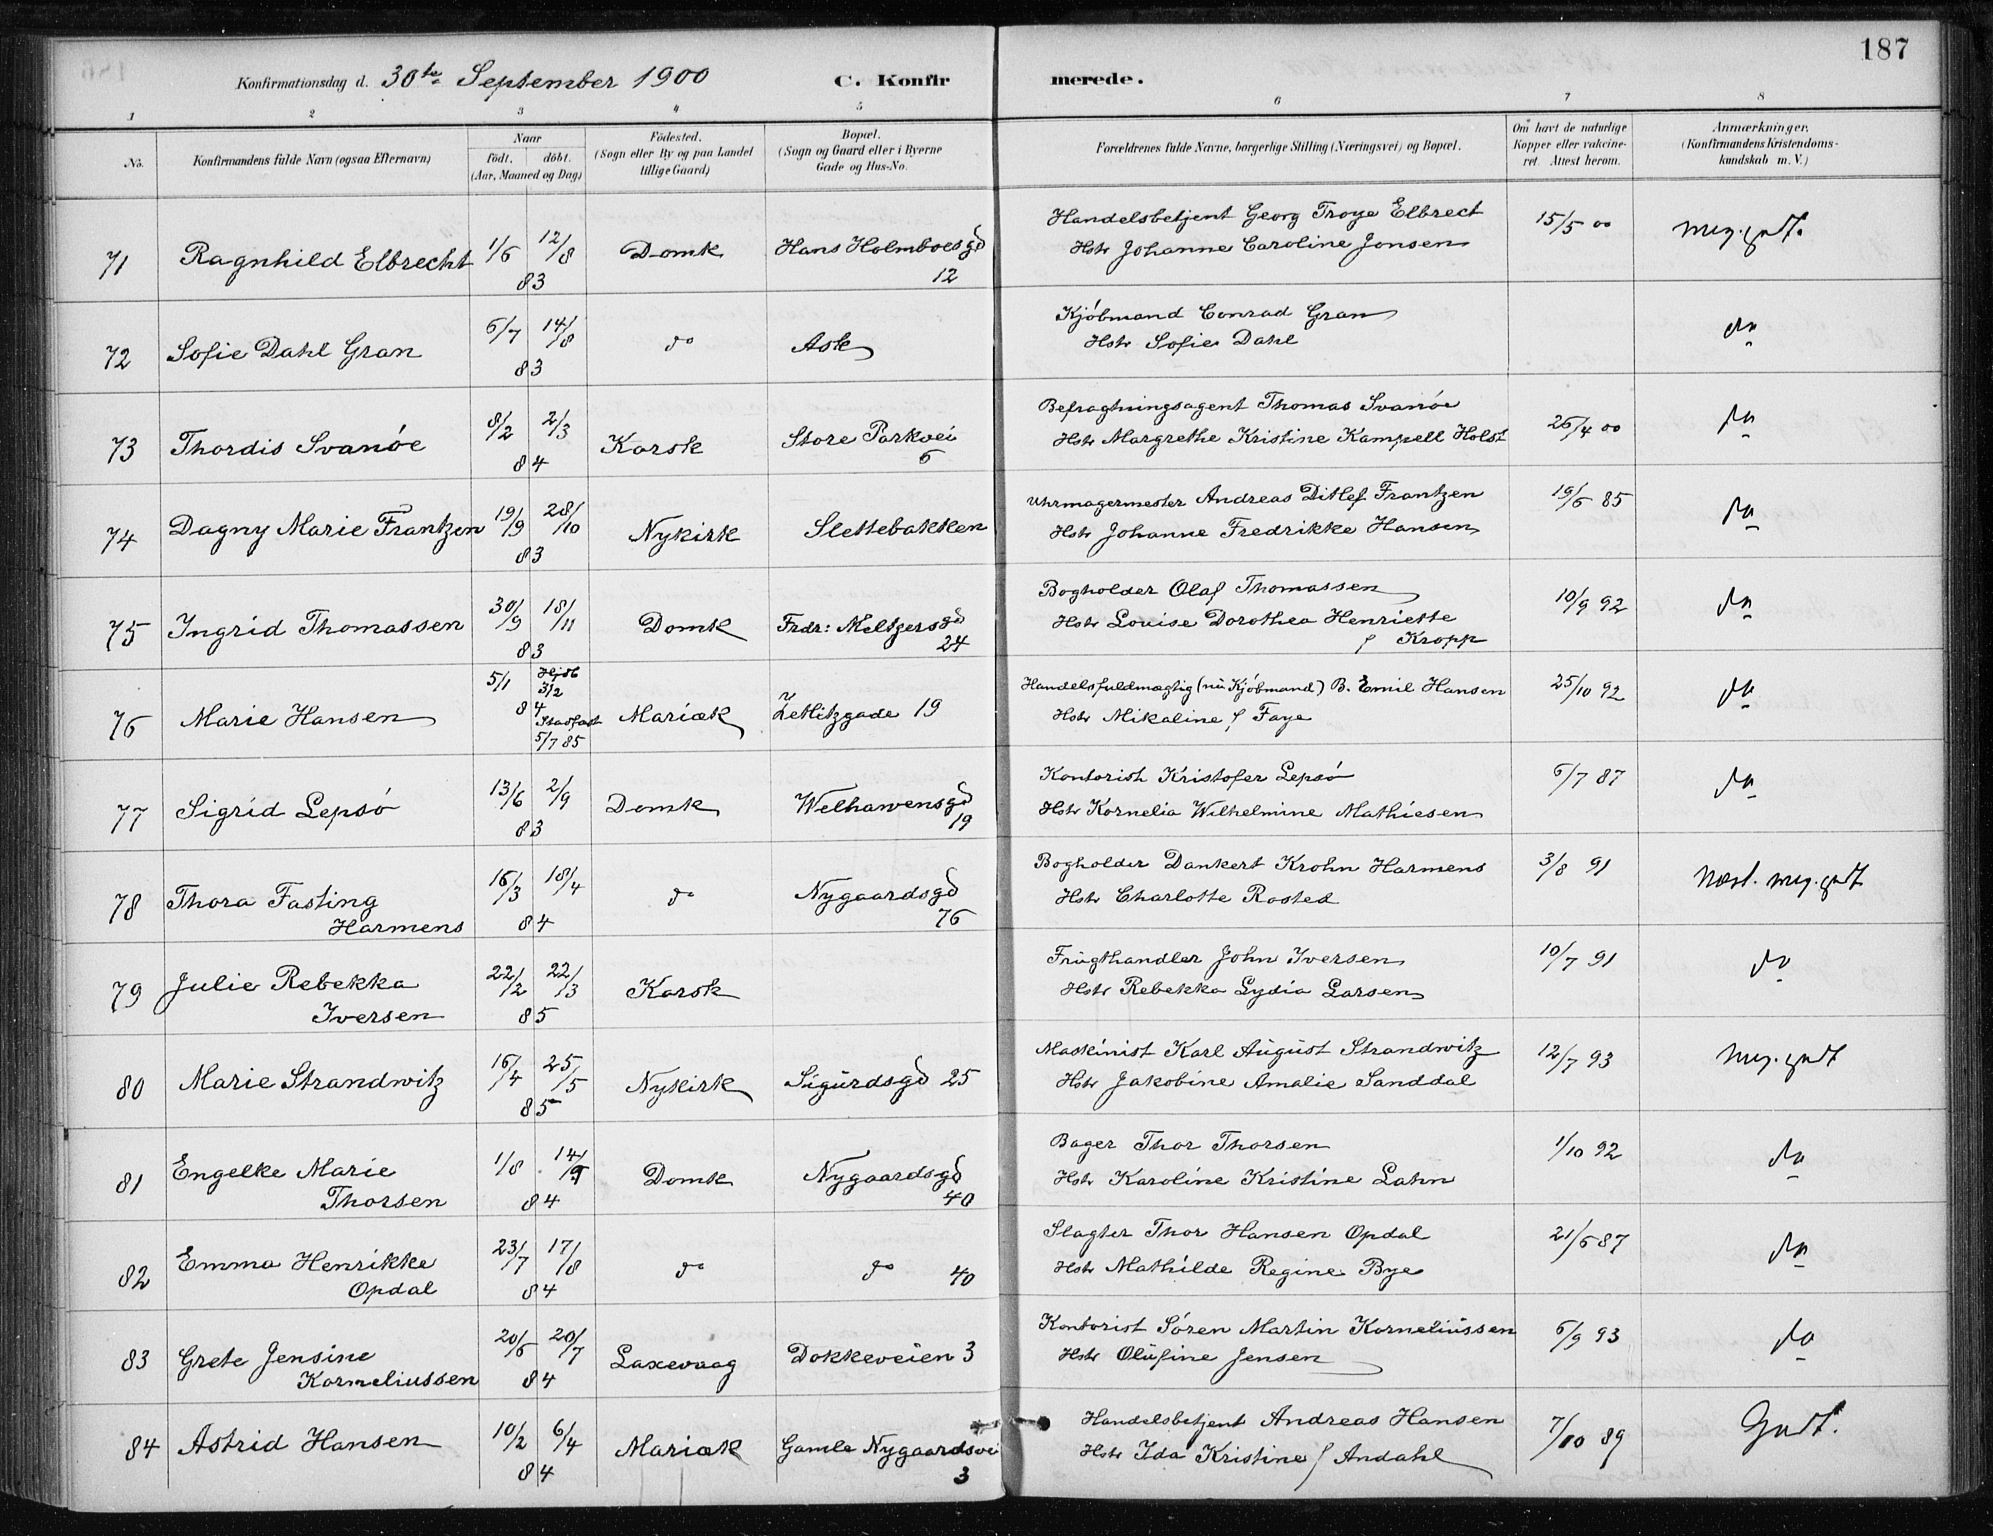 187
Konfirmationsdag d. 30te September 1900 C. Konfirmerede.
1 2 3 4 5 6 7 8
No. Konfirmandens fulde Navn (ogsaa Efternavn) Naar født. døbt. (Aar, Maaned og Dag) Fødested. (Sogn eller By og paa Landet tillige Gaard) Bopæl. (Sogn og Gaard eller i Byerne Gade og Hus-No. Forældrenes fulde Navne, borgerlige Stilling (Næringsvei) og Bopæl. Om havt de naturlige Kopper eller vakcineret. Attest herom. Anmærkninger. (Konfirmandens Kristendomskundskab m. V.)
71 Ragnhild Elbrecht 1/6 12/8 83 Domk Hans Holmboesgd 12 Handelsbetjent Georg Troye Elbrect 15/5 00 meg. godt.
Hstr Johanne Caroline Jensen
72 Sofie Dahl Gran 6/7 14/8 83 do Ask Kjøbmand Conrad Gran do
Hstr Sofie Dahl
73 Thordis Svanøe 8/2 2/3 84 Korsk Store Parkvei 6 Befragtningsagent Thomas Svanøe 26/4 00 do
Hstr Margrethe Kristine Kampell Holst
74 Dagny Marie Frantzen 19/9 28/10 83 Nykirk Slettebakken Uhrmagermester Andreas Ditlef Frantzen 19/6 85 do
Hstr Johanne Fredrikke Hansen
75 Ingrid Thomassen 30/9 18/11 83 Domk Frdr: Meltzersgd 24 Bogholder Olaf Thomassen 10/9 92 do
Hstr Louise Dorothea Henriette
f Kropp
76 Marie Hansen 5/1 84 Hjdb 3/2 Stadfæst 5/7 85 Mariæk Zetlitzgade 19 Handelsfuldmægtig (nu Kjøbmand) B. Emil Hansen 25/10 92 do
Hstr Mikaline f Faye
77 Sigrid Lepsø 13/6 2/9 83 Domk Welhavensgd 19 Kontorist Kristofer Lepsø 6/7 87 do
Hstr Kornelia Wilhelmine Mathiesen
78 Thora Fasting Harmens 16/3 18/4 84 do Nygaardsgd 76 Bogholder Dankert Krohn Harmens 3/8 91 Næst. meg. godt
Hstr Charlotte Rosted
79 Julie Rebekka Iversen 22/2 22/3 85 Korsk Frugthandler John Iversen 10/7 91 do
Hstr Rebekka Lydia Larsen
80 Marie Strandwitz 16/4 25/5 85 Nykirk Sigurdsgd 25 Maskinist Karl August Strandwitz 12/7 93 meg. godt
Hstr Jakobine Amalie Sanddal
81 Engelke Marie Thorsen 1/8 14/9 84 Domk Nygaardsgd 40 Bager Thor Thorsen 1/10 92 do
Hstr Karoline Kristine Lahn
82 Emma Henrikke Opdal 23/7 17/8 84 do do 40 Slagter Thor Hansen Opdal 21/6 87 do
Hstr Mathilde Regine Bye
83 Grete Jensine Korneliussen 20/6 20/7 84 Laxevaag Dokkeveien 3 Kontorist Søren Martin Korneliussen 6/9 93 do
Hstr Olufine Jensen
84 Astrid Hansen 10/2 6/4 84 Mariæk Gamle Nygaardsvei 3 Handelsbetjent Andreas Hansen 7/10 89 Godt.
Hstr Ida Kristine f Andahl